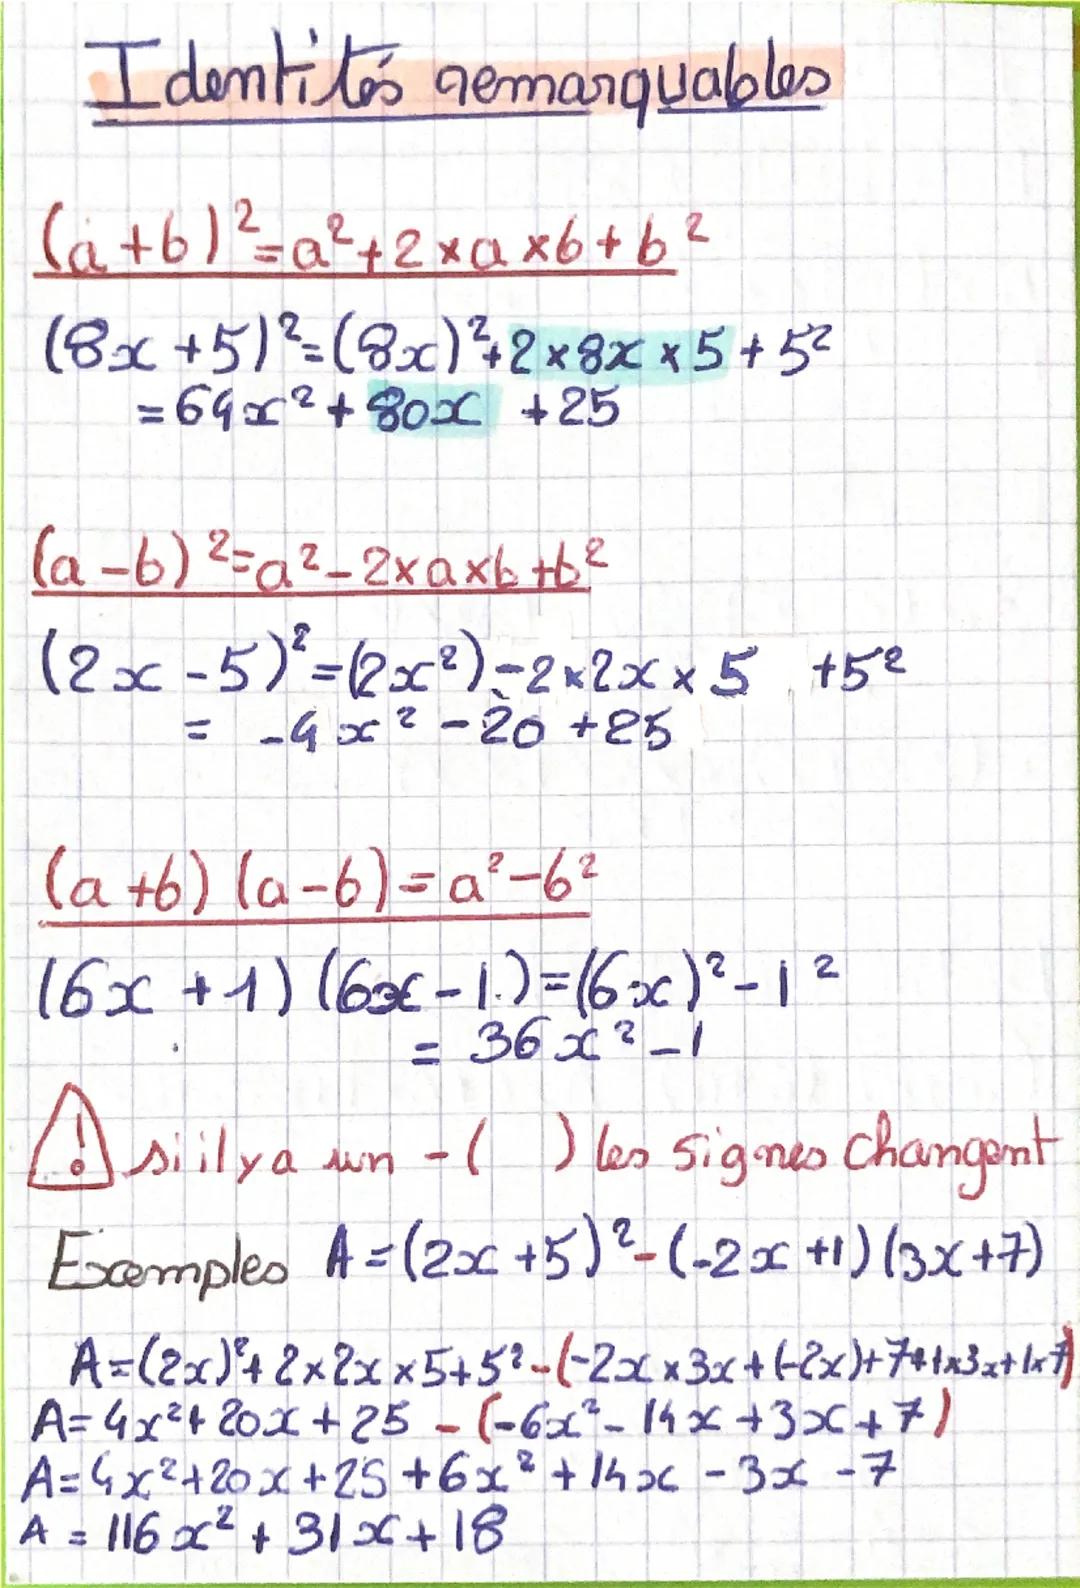 Identités remarquables
(a+b)²=a²+2×a×b+b²
(8x+5)²=(8x)²+2×8x×5+5²
=64x²+80x +25
(a-b)²=a²-2×a×b+b²
(2x-5)²=(2x²)-2×2x×5 +5²
= -4x²-20+25
(a+b)(a-b)=a²-b²
(6x+1)(6x-1)=(6x)²-1²
= 36x²-1
! si il y a un -( ) les signes changent
Exemples A=(2x+5)²-(-2x+1)(3x+7)
A=(2x)²+2×2x×5+5²-(-2x×3x+(-2x)+7+1×3x+1×7)
A=4x²+20x+25 -(-6x²-14x+3x+7)
A=4x²+20x+25+6x²+14x-3x-7
A=116x²+31x+18